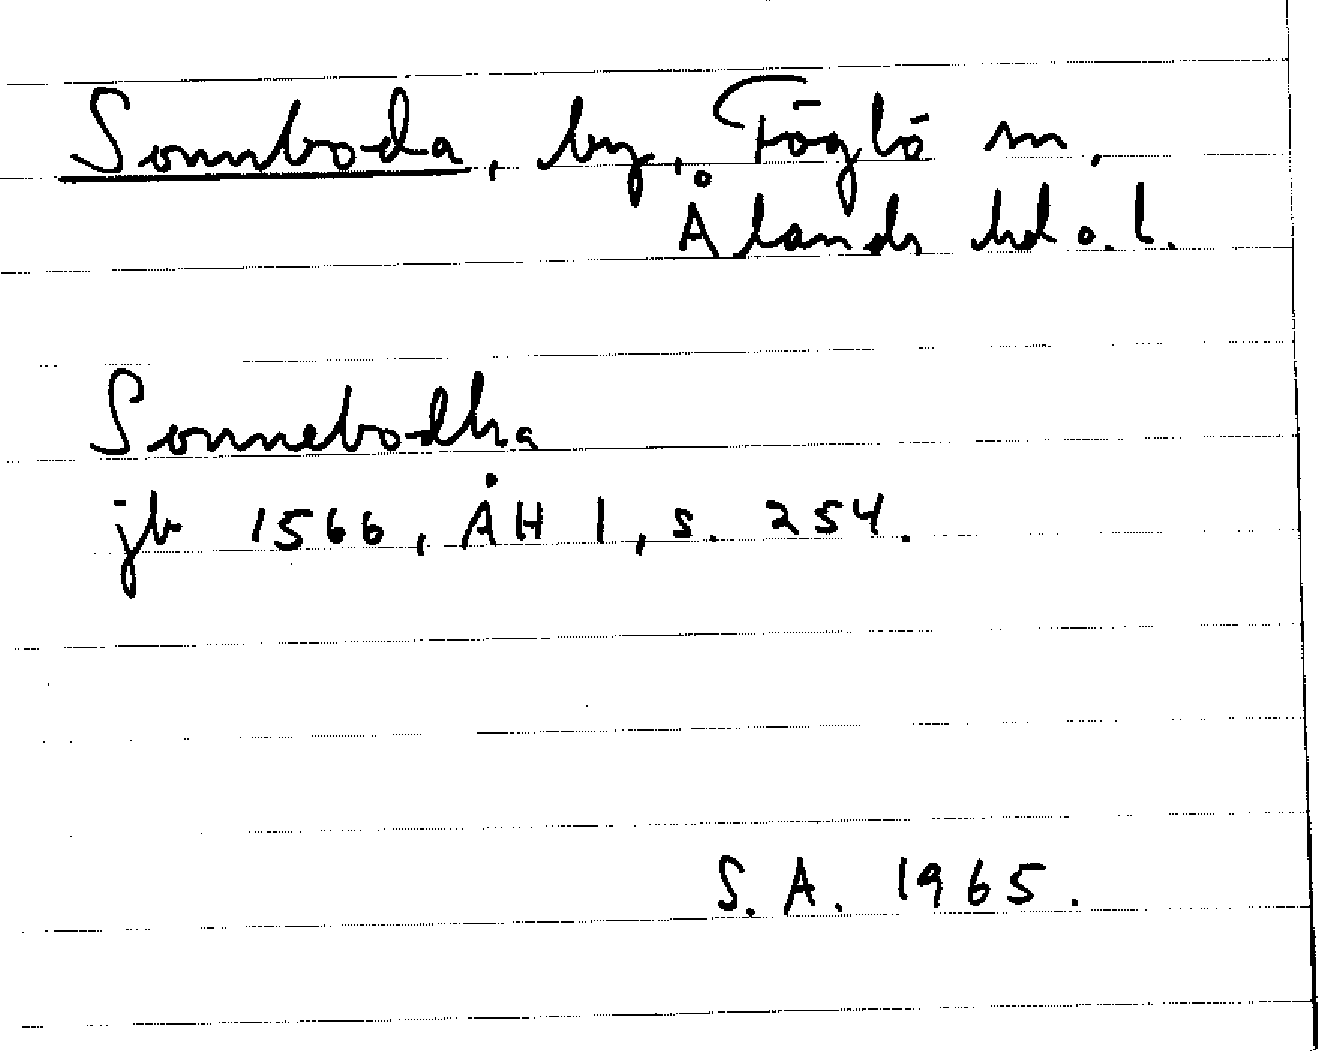 Sonnboda, by, Föglö sn,
Ålands hd o. l.
Sonnebodha
jb 1566, ÅH I, s. 254.
S. A. 1965.